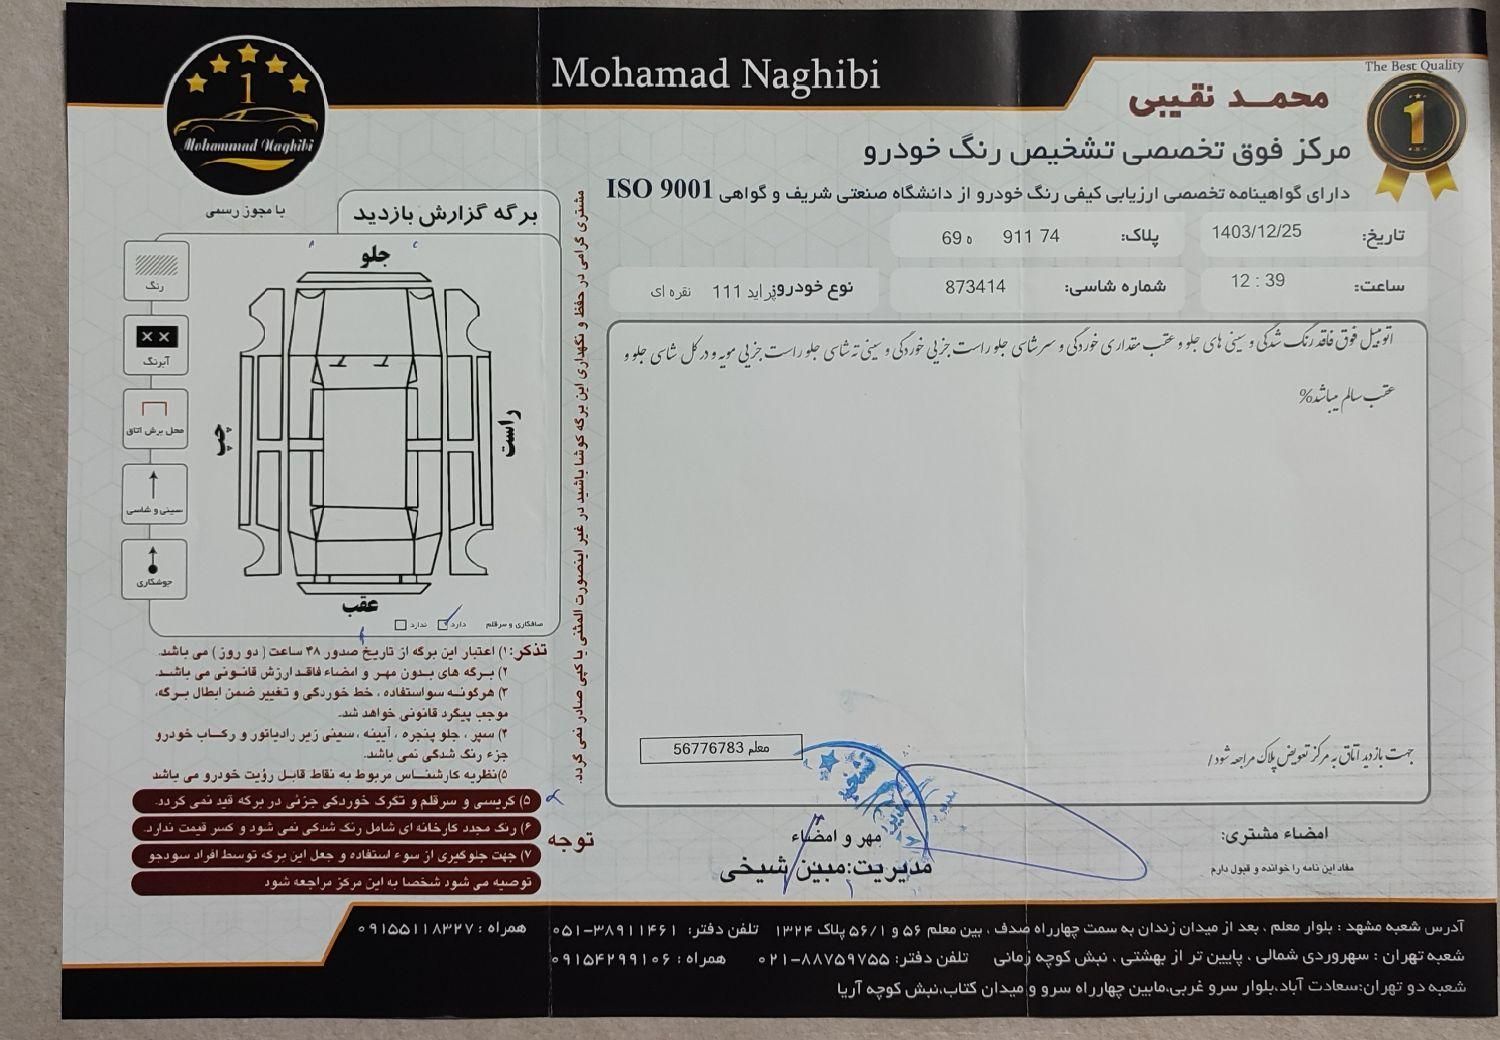 Mohamad Naghibi
The Best Quality
1
1
Mohammad Naghibi
با مجوز رسمی
محمــد نقیبی
مرکز فوق تخصصی تشخیص رنگ خودرو
دارای گواهینامه تخصصی ارزیابی کیفی رنگ خودرو از دانشگاه صنعتی شریف و گواهی ISO 9001
تاریخ: 1403/12/25
پلاک: 74 911 ه 69
ساعت: 12 : 39
شماره شاسی: 873414
نوع خودرو: پراید 111 نقره ای
اتومبیل فوق فاقد رنگ شدگی و سینی های جلو و عقب مقداری خوردگی و سرشاسی جلو راست جزیی خوردگی و سینی ته شاسی جلو راست جزیی مویه و در کل شاسی جلو و
عقب سالم میباشد%
جهت بازدید اتاق به مرکز تعویض پلاک مراجعه شود/
معلم 56776783
امضاء مشتری:
مفاد این نامه را خوانده و قبول دارم
مهر و امضاء
مدیریت:مبین شیخی
مشتری گرامی در حفظ و نگهداری این برگه کوشا باشید در غیر اینصورت المثنی یا کپی صادر نمی گردد.
برگه گزارش بازدید
جلو
چپ
راست
عقب
صافکاری و سرقلم دارد ندارد
رنگ
آبرنگ
محل برش اتاق
سینی و شاسی
جوشکاری
تذکر: ۱) اعتبار این برگه از تاریخ صدور ۴۸ ساعت ( دو روز ) می باشد.
۲) بـرگه های بـدون مهـر و امضـاء فاقـد ارزش قانـونی می باشـد.
۳) هرگونـه سواستفاده ، خط خوردگی و تغییر ضمن ابطال بـرگه،
موجب پیگرد قانونی خواهد شد.
۴) سپر ، جلو پنجره ، آیینه ، سینی زیر رادیاتور و رکـاب خودرو
جزء رنگ شدگی نمی باشد.
۵)نظریه کارشنـاس مربوط به نقاط قابـل رؤیت خودرو می باشد
توجه
۵) گریسی و سرقلم و تگرگ خوردگی جزئی در برگه قید نمی گردد.
۶) رنگ مجدد کارخانه ای شامل رنگ شدگی نمی شود و کسر قیمت ندارد.
۷) جهت جلوگیری از سوء استفاده و جعل این برگه توسط افراد سودجو
توصیه می شود شخصا به این مرکز مراجعه شود
آدرس شعبه مشهد : بلوار معلم ، بعد از میدان زندان به سمت چهارراه صدف ، بین معلم ۵۶ و ۵۶/۱ پلاک ۱۳۲۴ تلفن دفتر: ۳۸۹۱۱۴۶۱-۰۵۱ همراه : ۰۹۱۵۵۱۱۸۳۲۷
شعبه تهران : سهروردی شمالی ، پایین تر از بهشتی ، نبش کوچه زمانی تلفن دفتر: ۸۸۷۵۹۷۵۵-۰۲۱ همراه : ۰۹۱۵۴۲۹۹۱۰۶
شعبه دو تهران:سعادت آباد،بلوار سرو غربی،مابین چهارراه سرو و میدان کتاب،نبش کوچه آریا